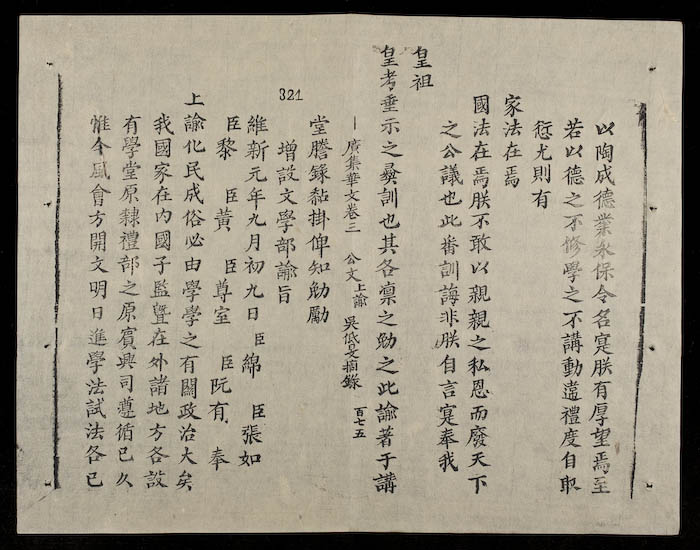 以陶成德業永保令名寔朕有厚望焉至
若以德之不修學之不講動違禮度自取
愆尤則有
家法在焉
國法在焉朕不敢以親親之私恩而廢天下
之公議也此番訓誨非朕自言寔奉我
皇祖
皇考垂示之彝訓也其各凛之勉之此諭著于講
廣集華文卷三 公文上諭 吳低旻摘錄 百七五
321
堂謄錄黏掛俾知勉勵
增設文學部諭旨
維新元年九月初九日臣綿 臣張如
臣黎 臣黃 臣尊室 臣阮有 奉
上諭化民成俗必由學學之有關政治大矣
我國家在內國子監曁在外諸地方各設
有學堂原隸禮部之原賓興司遵循已久
惟今風會方開文明日進學法試法各已